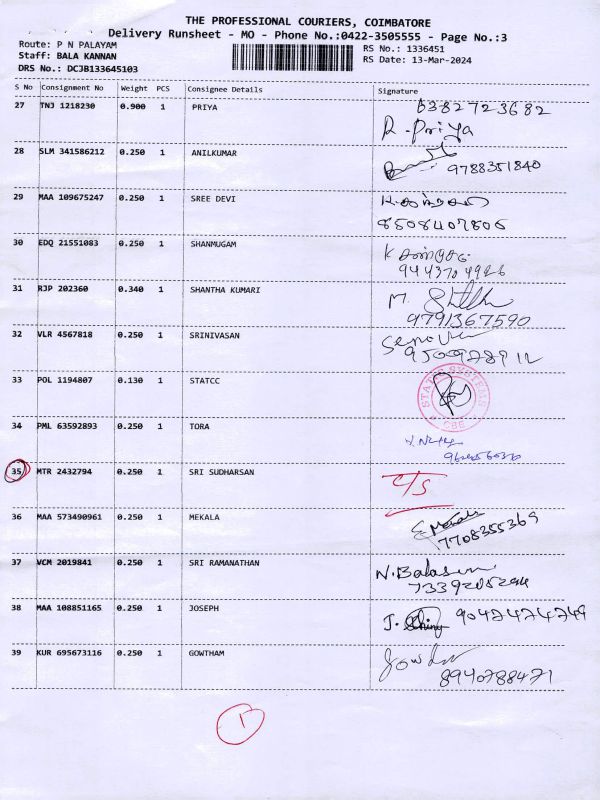 THE PROFESSIONAL COURIERS, COIMBATORE
Delivery Runsheet - MO - Phone No.:0422-3505555 - Page No.:3
Route: P N PALAYAM
RS No.: 1336451
Staff: BALA KANNAN
RS Date: 13-Mar-2024
DRS No.: DCJB133645103
S No Consignment No Weight PCS Consignee Details Signature
27 TNJ 1218230 0.900 1 PRIYA 6382723682
R. Priya
28 SLM 341586212 0.250 1 ANILKUMAR
9788351840
29 MAA 109675247 0.250 1 SREE DEVI
8508407806
30 EDQ 21551083 0.250 1 SHANMUGAM
9443704926
31 RJP 202360 0.340 1 SHANTHA KUMARI M.
9791367590
32 VLR 4567818 0.250 1 SRINIVASAN
9500978912
33 POL 1194807 0.130 1 STATCC
CBE
34 PML 63592893 0.250 1 TORA
35 MTR 2432794 0.250 1 SRI SUDHARSAN
36 MAA 573490961 0.250 1 MEKALA
7708355369
37 VCM 2019841 0.250 1 SRI RAMANATHAN
N. Balasun
38 MAA 108851165 0.250 1 JOSEPH J. 9047474749
39 KUR 695673116 0.250 1 GOWTHAM
8940788471
1